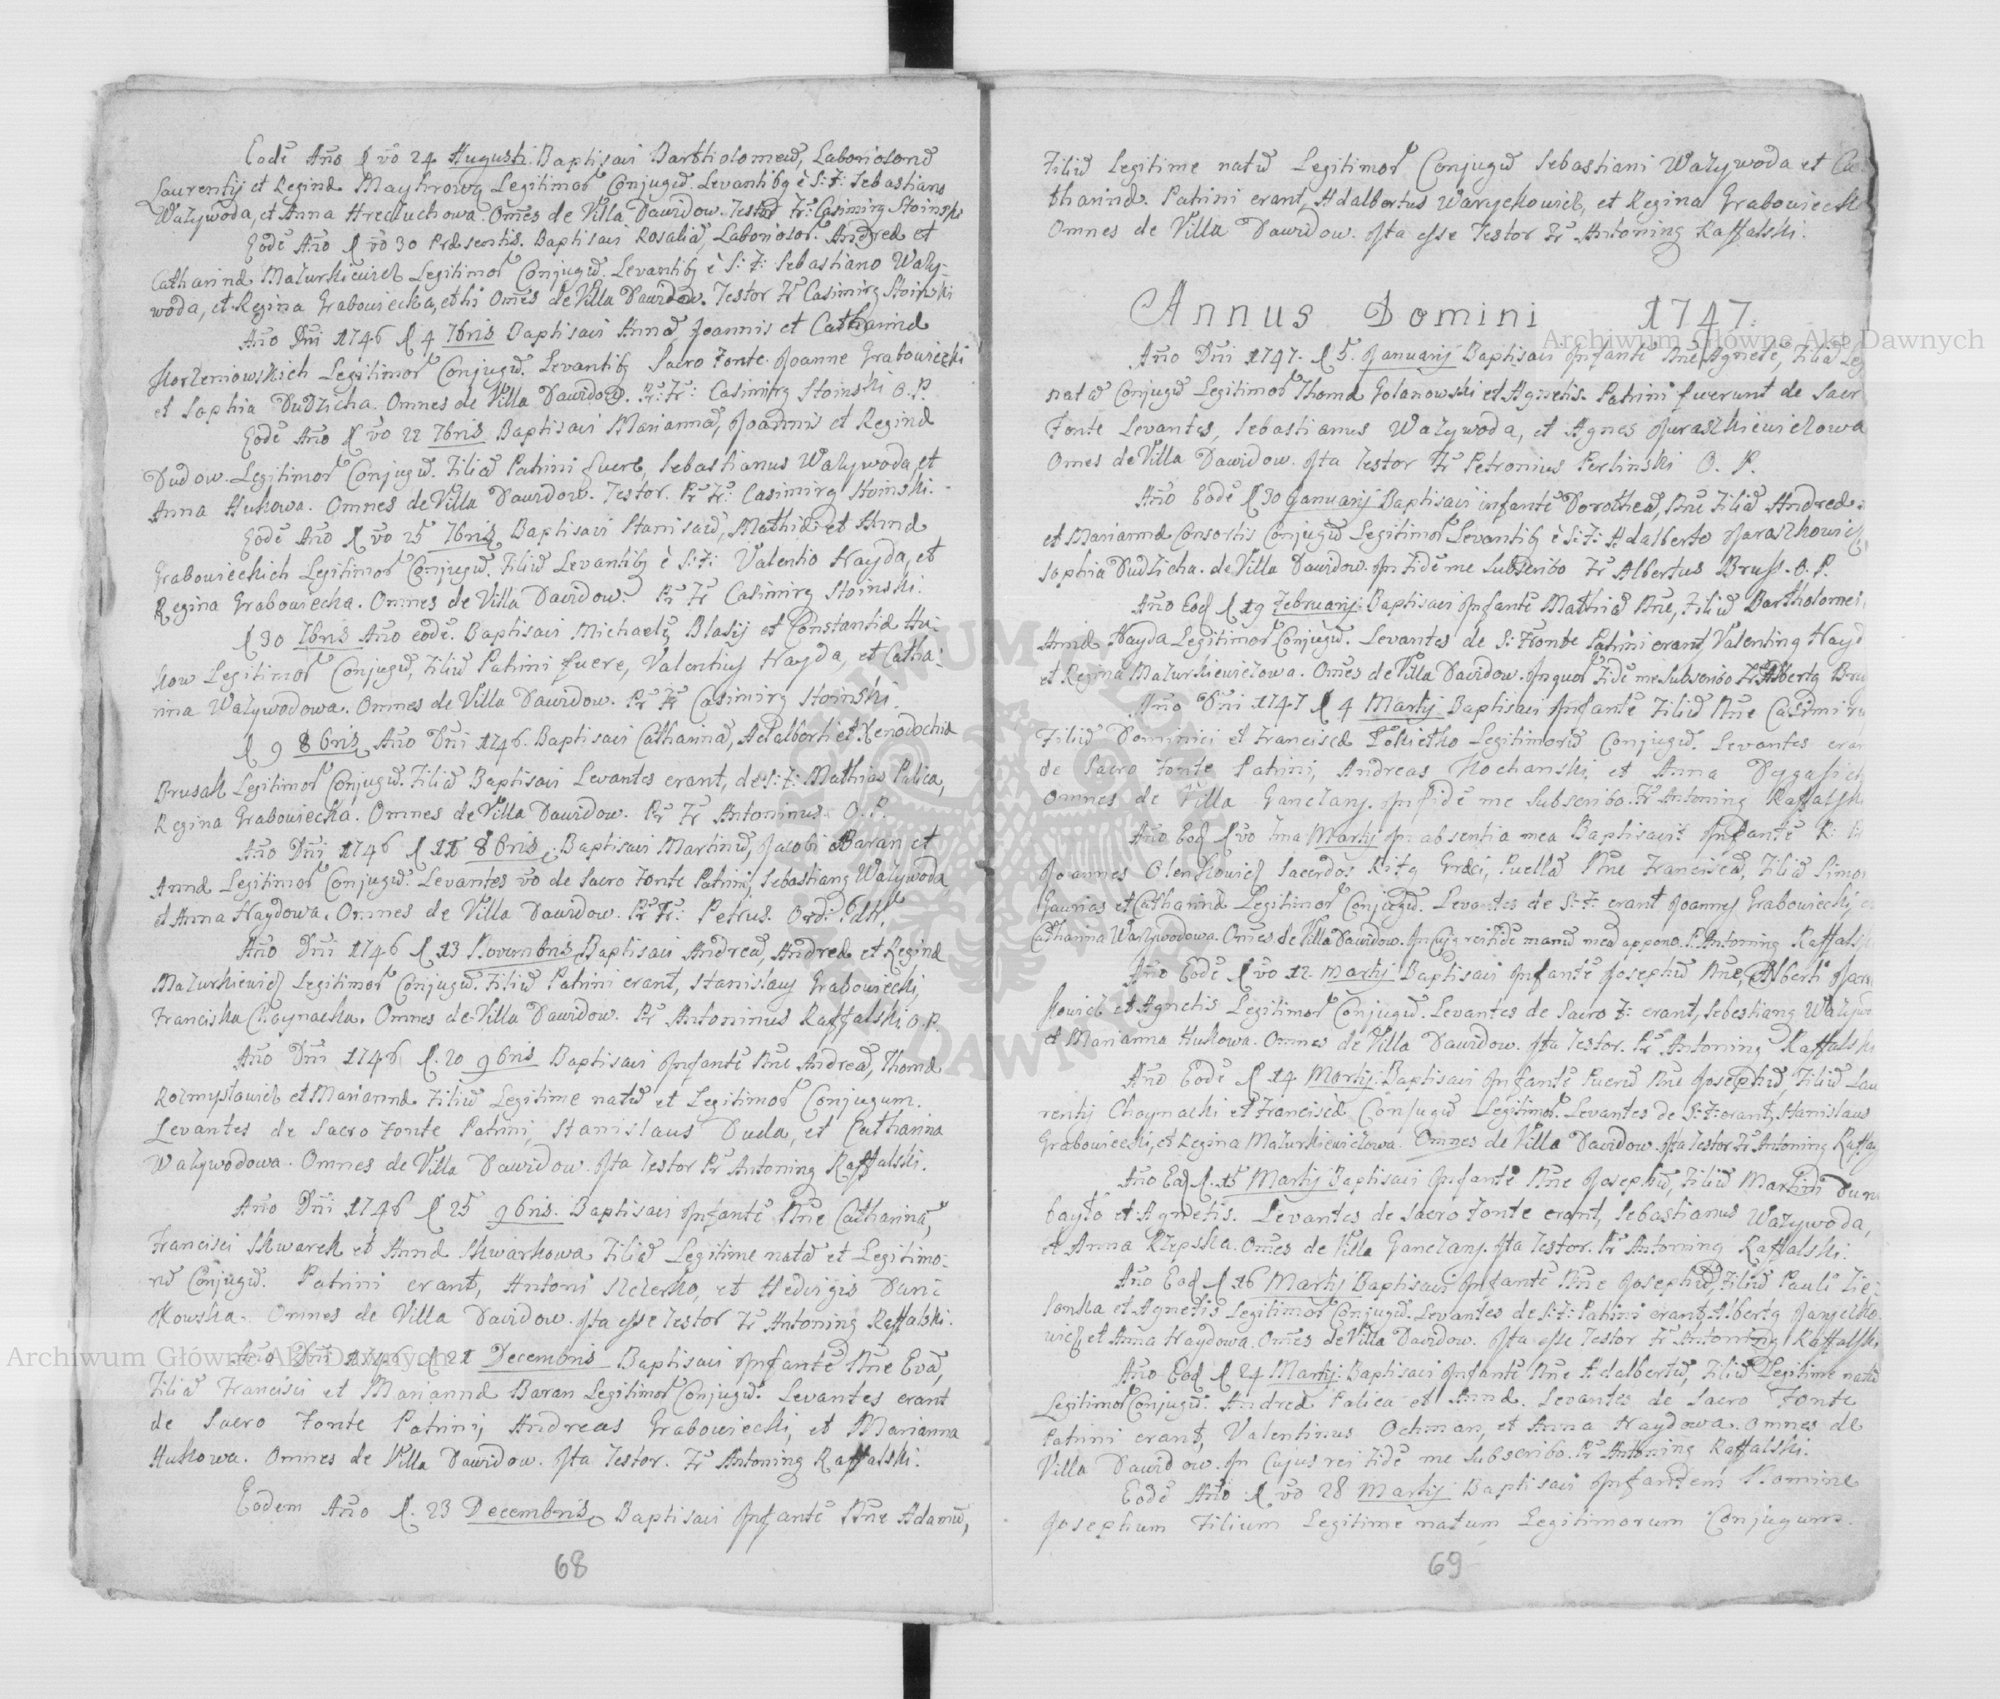 Eodē Año d vō 24 Augusti. Baptisavi Bartholomeū, Laboriosorū
Laurentij et Reginæ Maykrowq Legitimor Conjugū. Levantibq è S: F: Sebastiano
Wazywoda, et Anna Hreczuchowa. Omēs de Villa Dawidow. Testor Fr: Casimirq Stoinski
Eodē Año d vō 30 Præsentis. Baptisavi Rosaliā, Laboriosor. Andreæ et
Catharinæ Mazurkiewicz Legitimor Conjugū. Levantibq è S: F: Sebastiano Wazy-
woda, et Regina Grabowiecka, et hi Omēs de Villa Dawidow. Testor Fr Casimirq Stoinski
Año Dñi 1746 d 4 7bris Baptisavi Annā, Joannis et Catharinæ
Korzeniowskich Legitimor Conjugū. Levantibq Sacro Fonte. Joanne Grabowiecki
et Sophia Dudzicha. Omnes de Villa Dawidow. Pr: Fr: Casimirq Stoinski O. P.
Eodē Año d vō 22 7bris Baptisavi Mariannā, Joannis et Reginæ
Dudow. Legitimor Conjugū. Filiā Patrini fuere, Sebastianus Wazywoda, et
Anna Hukowa. Omnes de Villa Dawidow. Testor. Pr Fr: Casimirq Stoinski.
Eodē Año d vō 25 7bris Baptisavi Stanisaū, Mathiæ et Annæ
Grabowieckich Legitimor Conjugū. Filiū Levantibq è S: F: Valentio Hayda, et
Regina Grabowiecka. Omnes de Villa Dawidow. Pr Fr Casimirq Stoinski.
d 30 7bris Año eodē. Baptisavi Michaelē Blasij et Constantiæ Hu-
kow Legitimor Conjugū, Filiū Patrini fuere, Valentiuq Hayda, et Catha-
rina Wazywodowa. Omnes de Villa Dawidow. Pr Fr Casimirq Stoinski.
d 9 8bris Año Dñi 1746. Baptisavi Catharinā, Adalberti et Xenodochiæ
Brusak Legitimor Conjugū. Filiā Baptisavi Levantes erant, de S: F: Mathias Palica,
Regina Grabowiecka. Omnes de Villa Dawidow. Pr Fr Antoninus O. P.
Año Dñi 1746 d 11 8bris. Baptisavi Martinū, Jacobi Baran et
Annæ Legitimor Conjugū. Levantes vō de Sacro Fonte Patrini, Sebastianq Wazywoda
et Anna Haydowa. Omnes de Villa Dawidow. Pr Fr: Petrus. Ord:
Año Dñi 1746 d 13 Novembris Baptisavi Andreā, Andreæ et Reginæ
Mazurkiewicz Legitimor Conjugū. Filiū Patrini erant, Stanislauq Grabowiecki,
Franciska Choynacka. Omnes de Villa Dawidow. Pr Antoninus Raffalski O. P.
Año Dñi 1746 d. 20 9bris Baptisavi Infantē Nñe Andreā, Thomæ
Rozmysłowicz et Mariannæ Filiū Legitime natū et Legitimor Conjugum.
Levantes de Sacro Fonte Patrini, Stanislaus Duda, et Catharina
Wazywodowa. Omnes de Villa Dawidow. Ita Testor Pr Antoninq Raffalski.
Año Dñi 1746 d 25 9bris. Baptisavi Infantē Nñe Catharinā,
Francisci Skwarek et Annæ Skwarkowa Filiā Legitime natā et Legitimo-
rū Conjugū. Patrini erant, Antoni et Hedvigis Dani-
kowska. Omnes de Villa Dawidow. Ita esse Testor Fr Antoninq Raffalski.
Año Dñi 1746 d 21 Decembris Baptisavi Infantē Nñe Evā,
Filiā Francisci et Mariannæ Baran Legitimor Conjugū. Levantes erant
de Sacro Fonte Patrini, Andreas Grabowiecki, et Marianna
Hukowa. Omnes de Villa Dawidow. Ita Testor. Fr Antoninq Raffalski.
Eodem Año d. 23 Decembris Baptisavi Infantē Nñe Adamū,
68
Filiū Legitime natū Legitimor Conjugū Sebastiani Wazywoda et Ca-
tharinæ. Patrini erant, Adalbertus Waryckowicz, et Regina Grabowiecka
Omnes de Villa Dawidow. Ita esse Testor Fr Antoninq Raffalski.
Annus Domini 1747.
Año Dñi 1747. d 5. Januarij Baptisavi Infantē Nñe Agnetē, Filiā Leg
natā Conjugū Legitimor Thomæ Golanowski et Agnetis. Patrini fuerunt de Sacr
Fonte Levantes, Sebastianus Wazywoda, et Agnes Juraszkiewiczowa
Omēs de Villa Dawidow. Ita Testor Fr Petronius Perlinski O. P.
Año Eodē d 30 Januarij Baptisavi infantē Dorotheā, Nñe Filiā Andreæ
et Mariannæ Consortis Conjugū Legitimor Levantibq è S: F: Adalberto Jaraszkowicz,
Sophia Dudzicha. de Villa Dawidow. In Fidē me Subscribo Fr Albertus Bruss. O. P.
Año Eod d 19 Februarij. Baptisavi Infantē Mathiā Nñe, Filiū Bartholomei
Annæ Hayda Legitimor Conjugū. Levantes de S: Fonte Patrini erant, Valentinq Hayd
et Regina Mazurkiewiczowa. Omēs de Villa Dawidow. In quor Fidē me Subscribo Fr Albertq Bru
Año Dñi 1747 d 4 Martij Baptisavi Infantē Filiū Nñe Casimiru
Filiū Dominici et Franciscæ Łokietko Legitimorū Conjugū. Levantes eran
de Sacro Fonte Patrini, Andreas Kochanski, et Anna
Omnes de Villa Ganczary. In fidē me Subscribo. Fr Antoninq Raffalsk
Año Eod d vō 7ma Martij In absentia mea Baptisavit Infantē R:
Joannes Olenkowicz Sacerdos Ritq Græci, Puellā Nñe Franciscā, Filiā Simo
Gawrias et Catharinæ Legitimor Conjugū. Levantes de S: F: erant Joannes Grabowiecki, et
Catharina Wazywodowa. Omēs de Villa Dawidow. In Cujq rei Fidē manū meā appono. P. Antoninq Raffalsk
Año Eodē d vō 12. Martij Baptisavi Infantē Josephū Nñe, Alberti Jara
kowicz et Agnetis Legitimor Conjugū. Levantes de Sacro F: erant, Sebestianq Wazywo
et Marianna Hukowa. Omnes de Villa Dawidow. Ita Testor. Pr Antoninq Raffalski
Año Eodē d 14 Martij. Baptisavi Infantē Puerū Nñe Josephū, Filiū Lau
rentij Choynacki et Franciscæ Conjugū Legitimor. Levantes de S: F: erant, Stanislaus
Grabowiecki, et Regina Mazurkiewiczowa. Omnes de Villa Dawidow. Ita Testor Fr Antoninq Raffal
Año Eod d. 15 Martij Baptisavi Infantē Nñe Josephū, Filiū Martini
et Agnetis. Levantes de Sacro Fonte erant, Sebastianus Wazywoda,
et Anna Rzepska. Omēs de Villa Ganczary. Ita Testor. Pr Antoninq Raffalski.
Año Eod d 16 Martij Baptisavi Infantē Nñe Josephū, Filiū Pauli Zie-
lonka et Agnetis Legitimor Conjugū. Levantes de S: F: Patrini erant, Albertq Jaryczko-
wicz et Anna Haydowa. Omēs de Villa Dawidow. Ita esse Testor Fr Antoninq Raffalski
Año Eod d 24 Martij. Baptisavi Infantē Nñe Adalbertū, Filiū Legitime natū
Legitimor Conjugū. Andreæ Palica et Annæ. Levantes de Sacro Fonte
Patrini erant, Valentinus Ochman, et Anna Haydowa. Omnes de
Villa Dawidow. In Cujus rei Fidē me Subscribo. Pr Antoninq Raffalski.
Eodē Año d vō 28 Martij Baptisavi Infantem Nomine
Josephum Filium Legitime natum Legitimorum Conjugum.
69
Archiwum Główne Akt Dawnych
Archiwum Główne Akt Dawnych